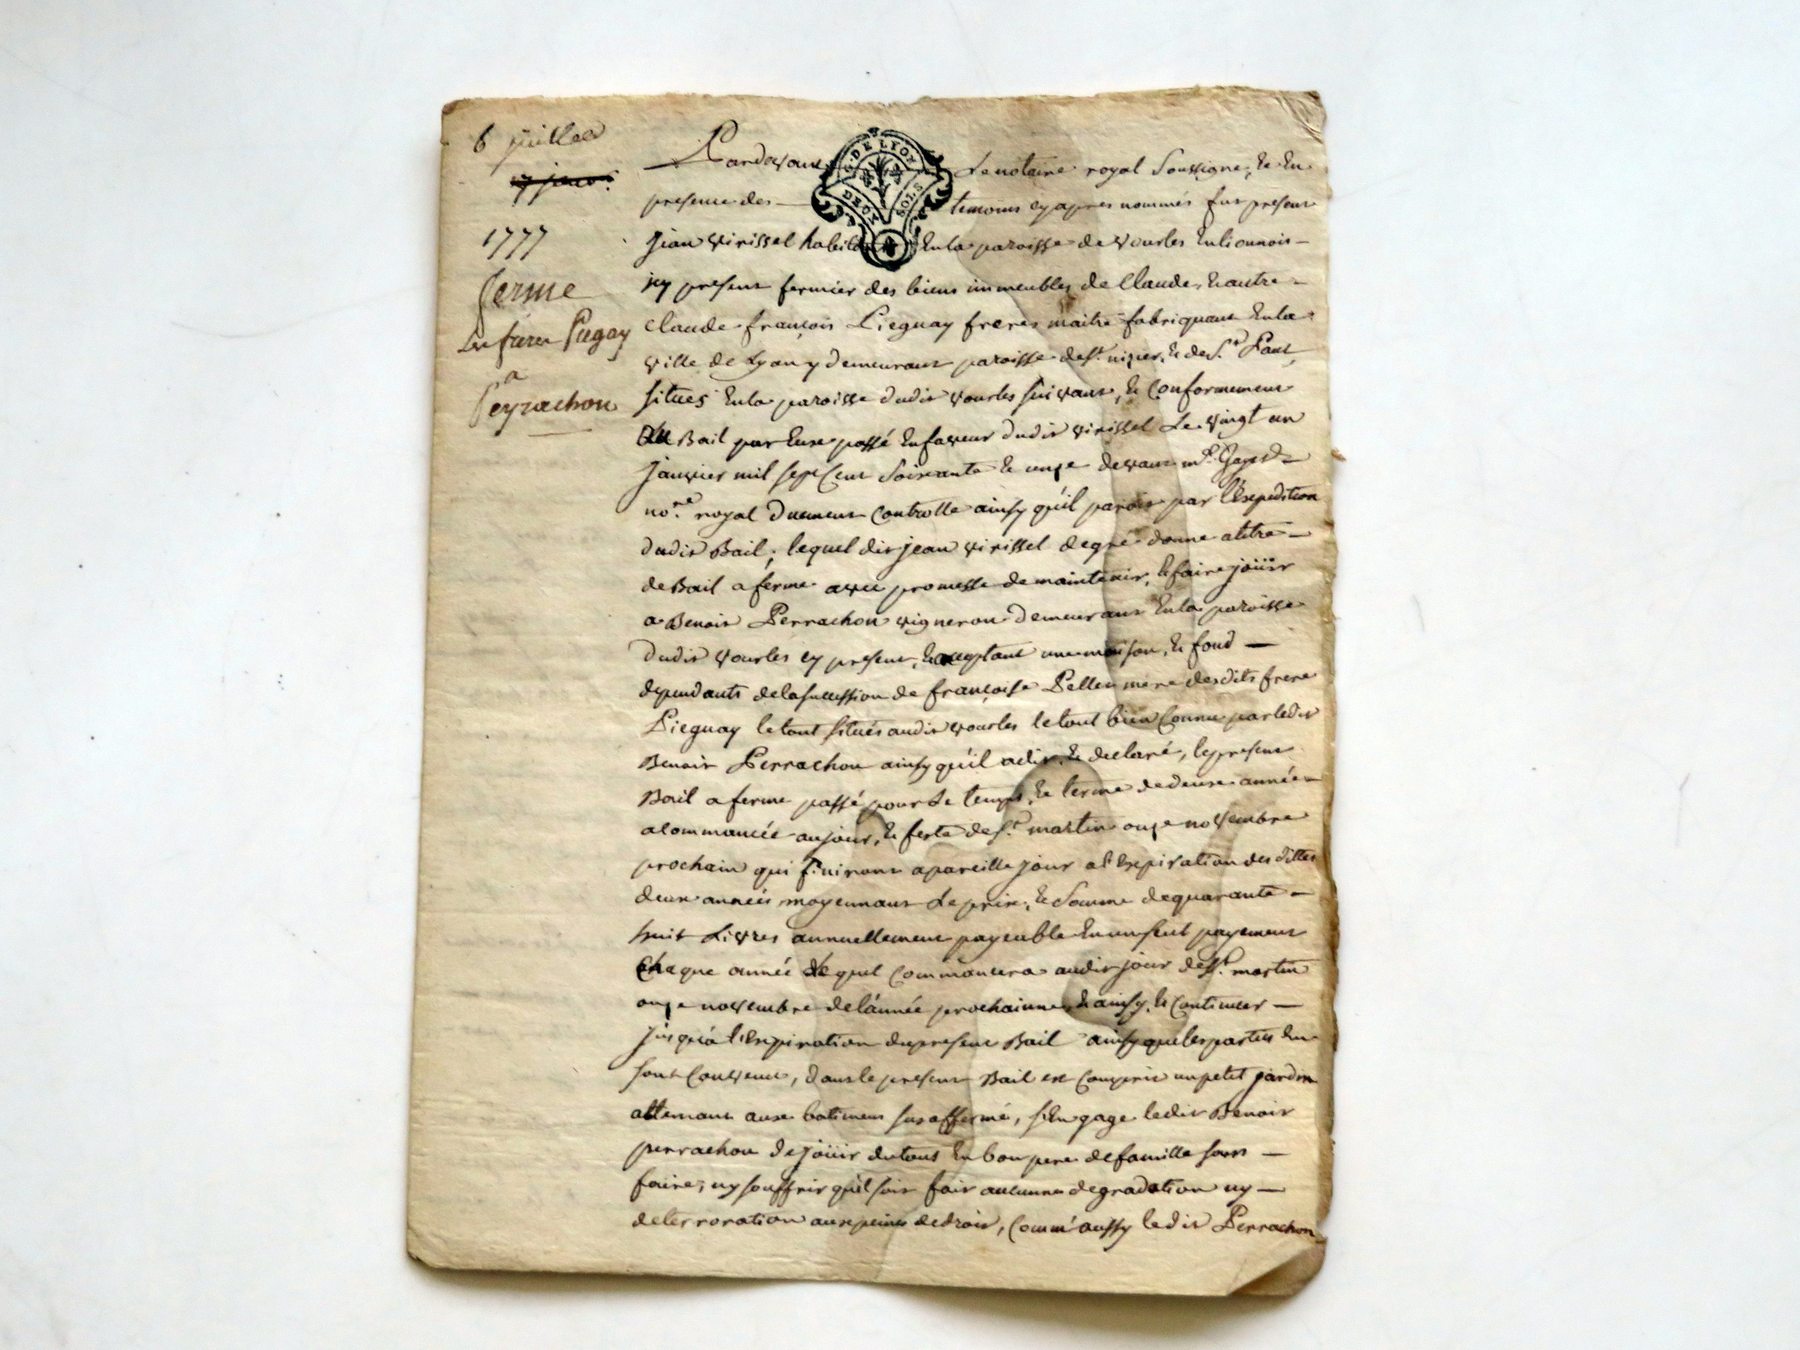 6 juillet
1777
ferme
Les freres Piegay
a
Peyrachon
G. DE LYON
DEUX SOLS
Pardevant Le notaire royal Soussigné, & En
presence des temoins cy apres nommés fut present
Jean virissel habitant En la paroisse de vourles En lionnois
icy present fermier des biens immeubles de Claude, & autre
claude françois Pieguay freres maitre fabriquant En la
ville de Lyon y demeurant paroisse de St. nizier, & de St. Paul,
situés En la paroisse dudit vourles suivant, & Conformement
Au Bail par Eux passé En faveur dudit virissel Le vingt un
Janvier mil sept Cent Soixante & onze devant me.
no.re royal duement Controllé ainsy qu'il paroit par l'Expedition
dudit Bail, lequel dit jean virissel de gré donne a titre
de Bail a ferme avec promesse de maintenir, & faire joüir
a Benoit Perrachon vigneron demeurant En la paroisse
dudit vourles cy present, & acceptant une maison, & fond
dependants de la succession de françoise Pellen mere des dits frere
Pieguay le tout situés audit vourles le tout bien Connu par ledit
Benoit Perrachon ainsy qu'il a dit, & declaré, le present
Bail a ferme passé pour Le temps, & terme de deux année
a commancée au jour, & feste de St. martin onze novembre
prochain qui finiront a pareille jour a l'Expiration des dittes
deux années moyennant Le prix, & Somme de quarante
huit Livres annuellement payeable En un seul payement
Chaque année Lequel Commancera audit jour de St. martin
onze novembre de l'année prochainne, & ainsy, & Continuer
Jusqu'a l'Expiration du present Bail ainsy que les parties En
sont Convenus, dans le present Bail est Compris un petit jardin
attenant aux batimens sus affermé, s'En gage ledit Benoit
perrachon de joüir du tout En bon pere de famille sans
faire, ny souffrir qu'il soit fait aucunne degradation ny
deterroration aux peines de droit, Comm'aussy ledit Perrachon